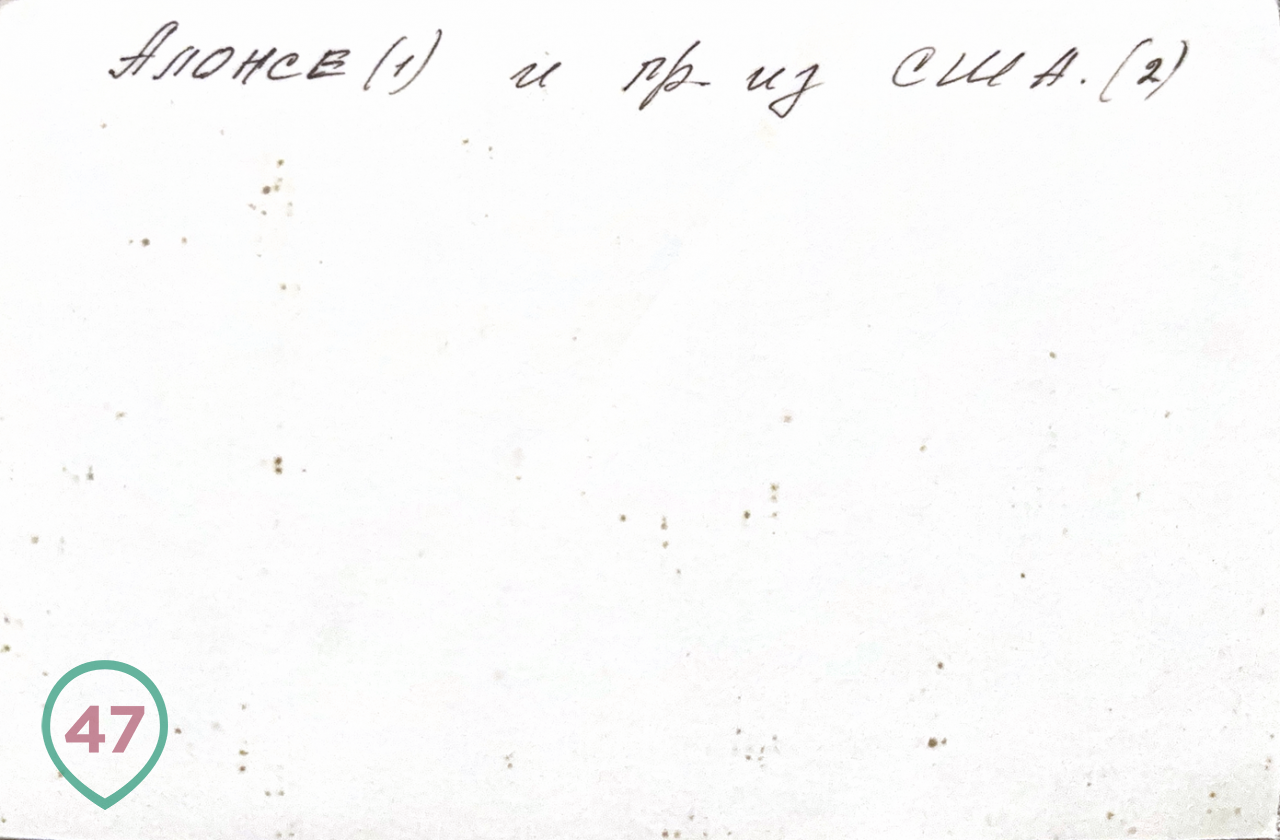 Алонсе (1) и гр из США. (2)
47